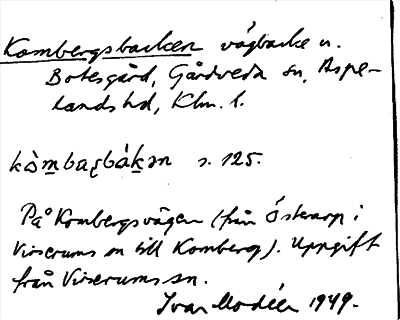 Kombergsbacken vägbacke n.
Botesgård, Gårdveda sn, Aspe-
lands hd, Klm. l.
kòmbaꭋbákən s. 125.
På Kombergsvägen (från Österarp i
Virserums sn till Komberg). Uppgift
från Virserums sn.
Ivar Modéer 1949.